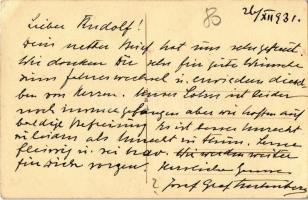 26/XII 931.
Lieber Rudolf!
Dein netter Brief hat uns sehr gefreut.
Wir danken Dir sehr für gute Wünsche
zum Jahreswechsel u. erwiedern dieselben
von Herzen. Unser Sohn ist leider
noch immer gefangen aber wir hoffen auf
baldige Befreiung. Es ist ein Unrecht
fleissig u. sei brav. Wir werden weiter
für Dich sorgen. Herzliche Grüsse
Josef Graf